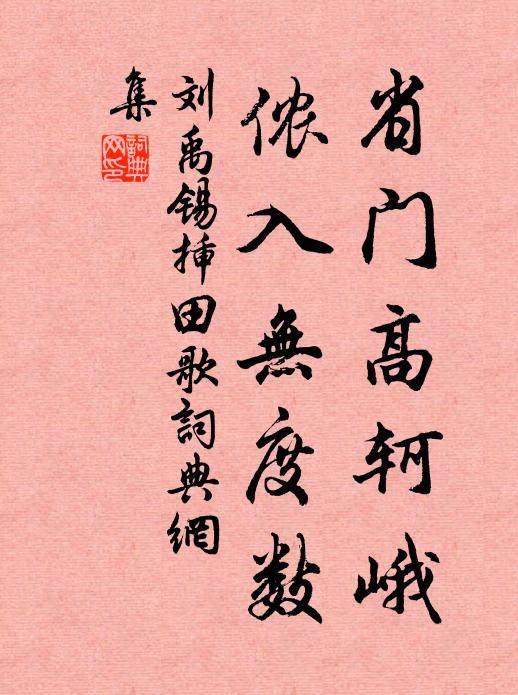 省门高轲峨
侬入無度数
刘禹锡挿田歌詞典網
集
詞典网印